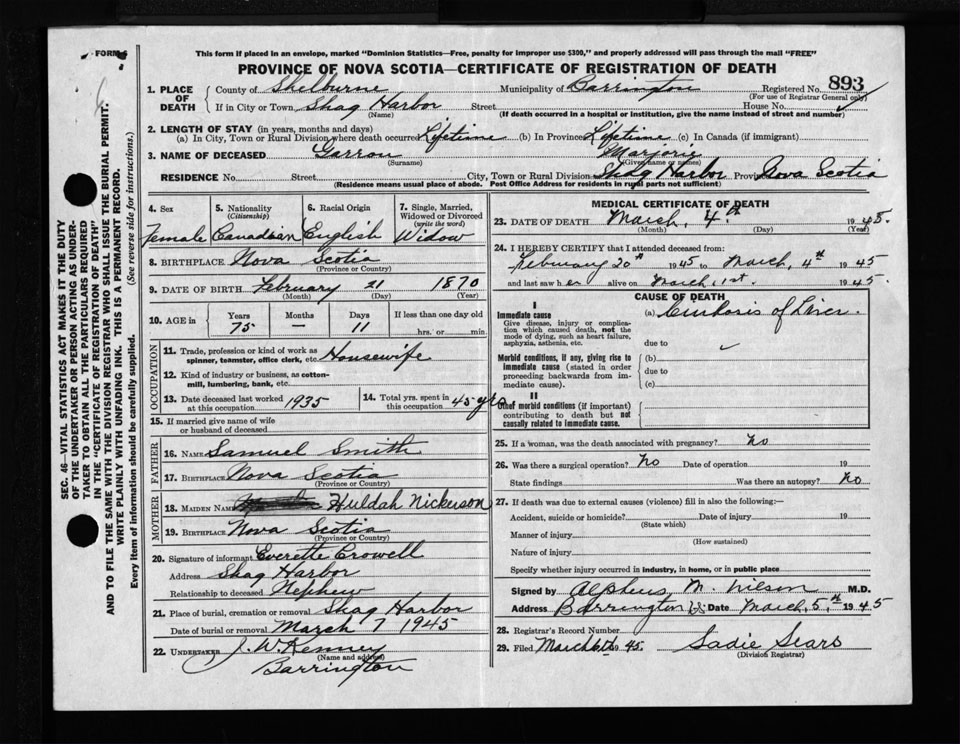 FORM 6
This form if placed in an envelope, marked "Dominion Statistics—Free, penalty for improper use $300," and properly addressed will pass through the mail "FREE"
PROVINCE OF NOVA SCOTIA—CERTIFICATE OF REGISTRATION OF DEATH
Registered No. 893
(For use of Registrar General only)
1. PLACE OF DEATH
County of Shelburne Municipality of Barrington
If in City or Town Shag Harbor Street House No.
(Name) (If death occurred in a hospital or institution, give the name instead of street and number)
2. LENGTH OF STAY (in years, months and days)
(a) In City, Town, or Rural Division where death occurred Lifetime (b) In Province Lifetime (c) In Canada (if immigrant)
3. NAME OF DECEASED Garron Marjorie
(Surname) (Given name or names)
RESIDENCE No. Street City, Town or Rural Division Shag Harbor Province Nova Scotia
(Residence means usual place of abode. Post Office Address for residents in rural parts not sufficient)
4. Sex Female
5. Nationality (Citizenship) Canadian
6. Racial Origin English
7. Single, Married, Widowed or Divorced (write the word) Widow
8. BIRTHPLACE Nova Scotia
(Province or Country)
9. DATE OF BIRTH February 21 1870
(Month) (Day) (Year)
10. AGE in Years Months Days If less than one day old
75 — 11 hrs. or min.
OCCUPATION
11. Trade, profession or kind of work as spinner, teamster, office clerk, etc. Housewife
12. Kind of industry or business, as cotton-mill, lumbering, bank, etc.
13. Date deceased last worked at this occupation 1935
14. Total yrs. spent in this occupation 45 yrs
15. If married give name of wife or husband of deceased
FATHER
16. NAME Samuel Smith
17. BIRTHPLACE Nova Scotia
(Province or Country)
MOTHER
18. MAIDEN NAME Huldah Nickerson
19. BIRTHPLACE Nova Scotia
(Province or Country)
20. Signature of informant Everette Crowell
Address Shag Harbor
Relationship to deceased Nephew
21. Place of burial, cremation or removal Shag Harbor
Date of burial or removal March 7 1945
22. UNDERTAKER J. W. Kenney
(Name and address)
Barrington
MEDICAL CERTIFICATE OF DEATH
23. DATE OF DEATH March, 4th 1945.
(Month) (Day) (Year)
24. I HEREBY CERTIFY that I attended deceased from:
February 20th 1945 to March, 4th 1945
and last saw her alive on March, 1st. 1945.
CAUSE OF DEATH
I
Immediate cause
Give disease, injury or complication which caused death, not the mode of dying, such as heart failure, asphyxia, asthenia, etc.
(a) Cirrhosis of Liver.
due to
Morbid conditions, if any, giving rise to immediate cause (stated in order proceeding backwards from immediate cause).
(b)
due to
(c)
II
Other morbid conditions (if important) contributing to death but not causally related to immediate cause.
25. If a woman, was the death associated with pregnancy? no
26. Was there a surgical operation? No Date of operation 19
State findings Was there an autopsy? No
27. If death was due to external causes (violence) fill in also the following:—
Accident, suicide or homicide? Date of injury 19
(State which)
Manner of injury
(How sustained)
Nature of injury
Specify whether injury occurred in industry, in home, or in public place
Signed by Alpheus M. Wilson M.D.
Address Barrington Date March, 5th. 1945
28. Registrar's Record Number
29. Filed March 6th 1945. Sadie Sears
(Division Registrar)
SEC. 46—VITAL STATISTICS ACT MAKES IT THE DUTY
OF THE UNDERTAKER OR PERSON ACTING AS UNDER-
TAKER TO OBTAIN ALL THE PARTICULARS REQUIRED
IN THE "CERTIFICATE OF REGISTRATION OF DEATH"
AND TO FILE THE SAME WITH THE DIVISION REGISTRAR WHO SHALL ISSUE THE BURIAL PERMIT.
WRITE PLAINLY WITH UNFADING INK. THIS IS A PERMANENT RECORD.
Every item of information should be carefully supplied. (See reverse side for instructions.)